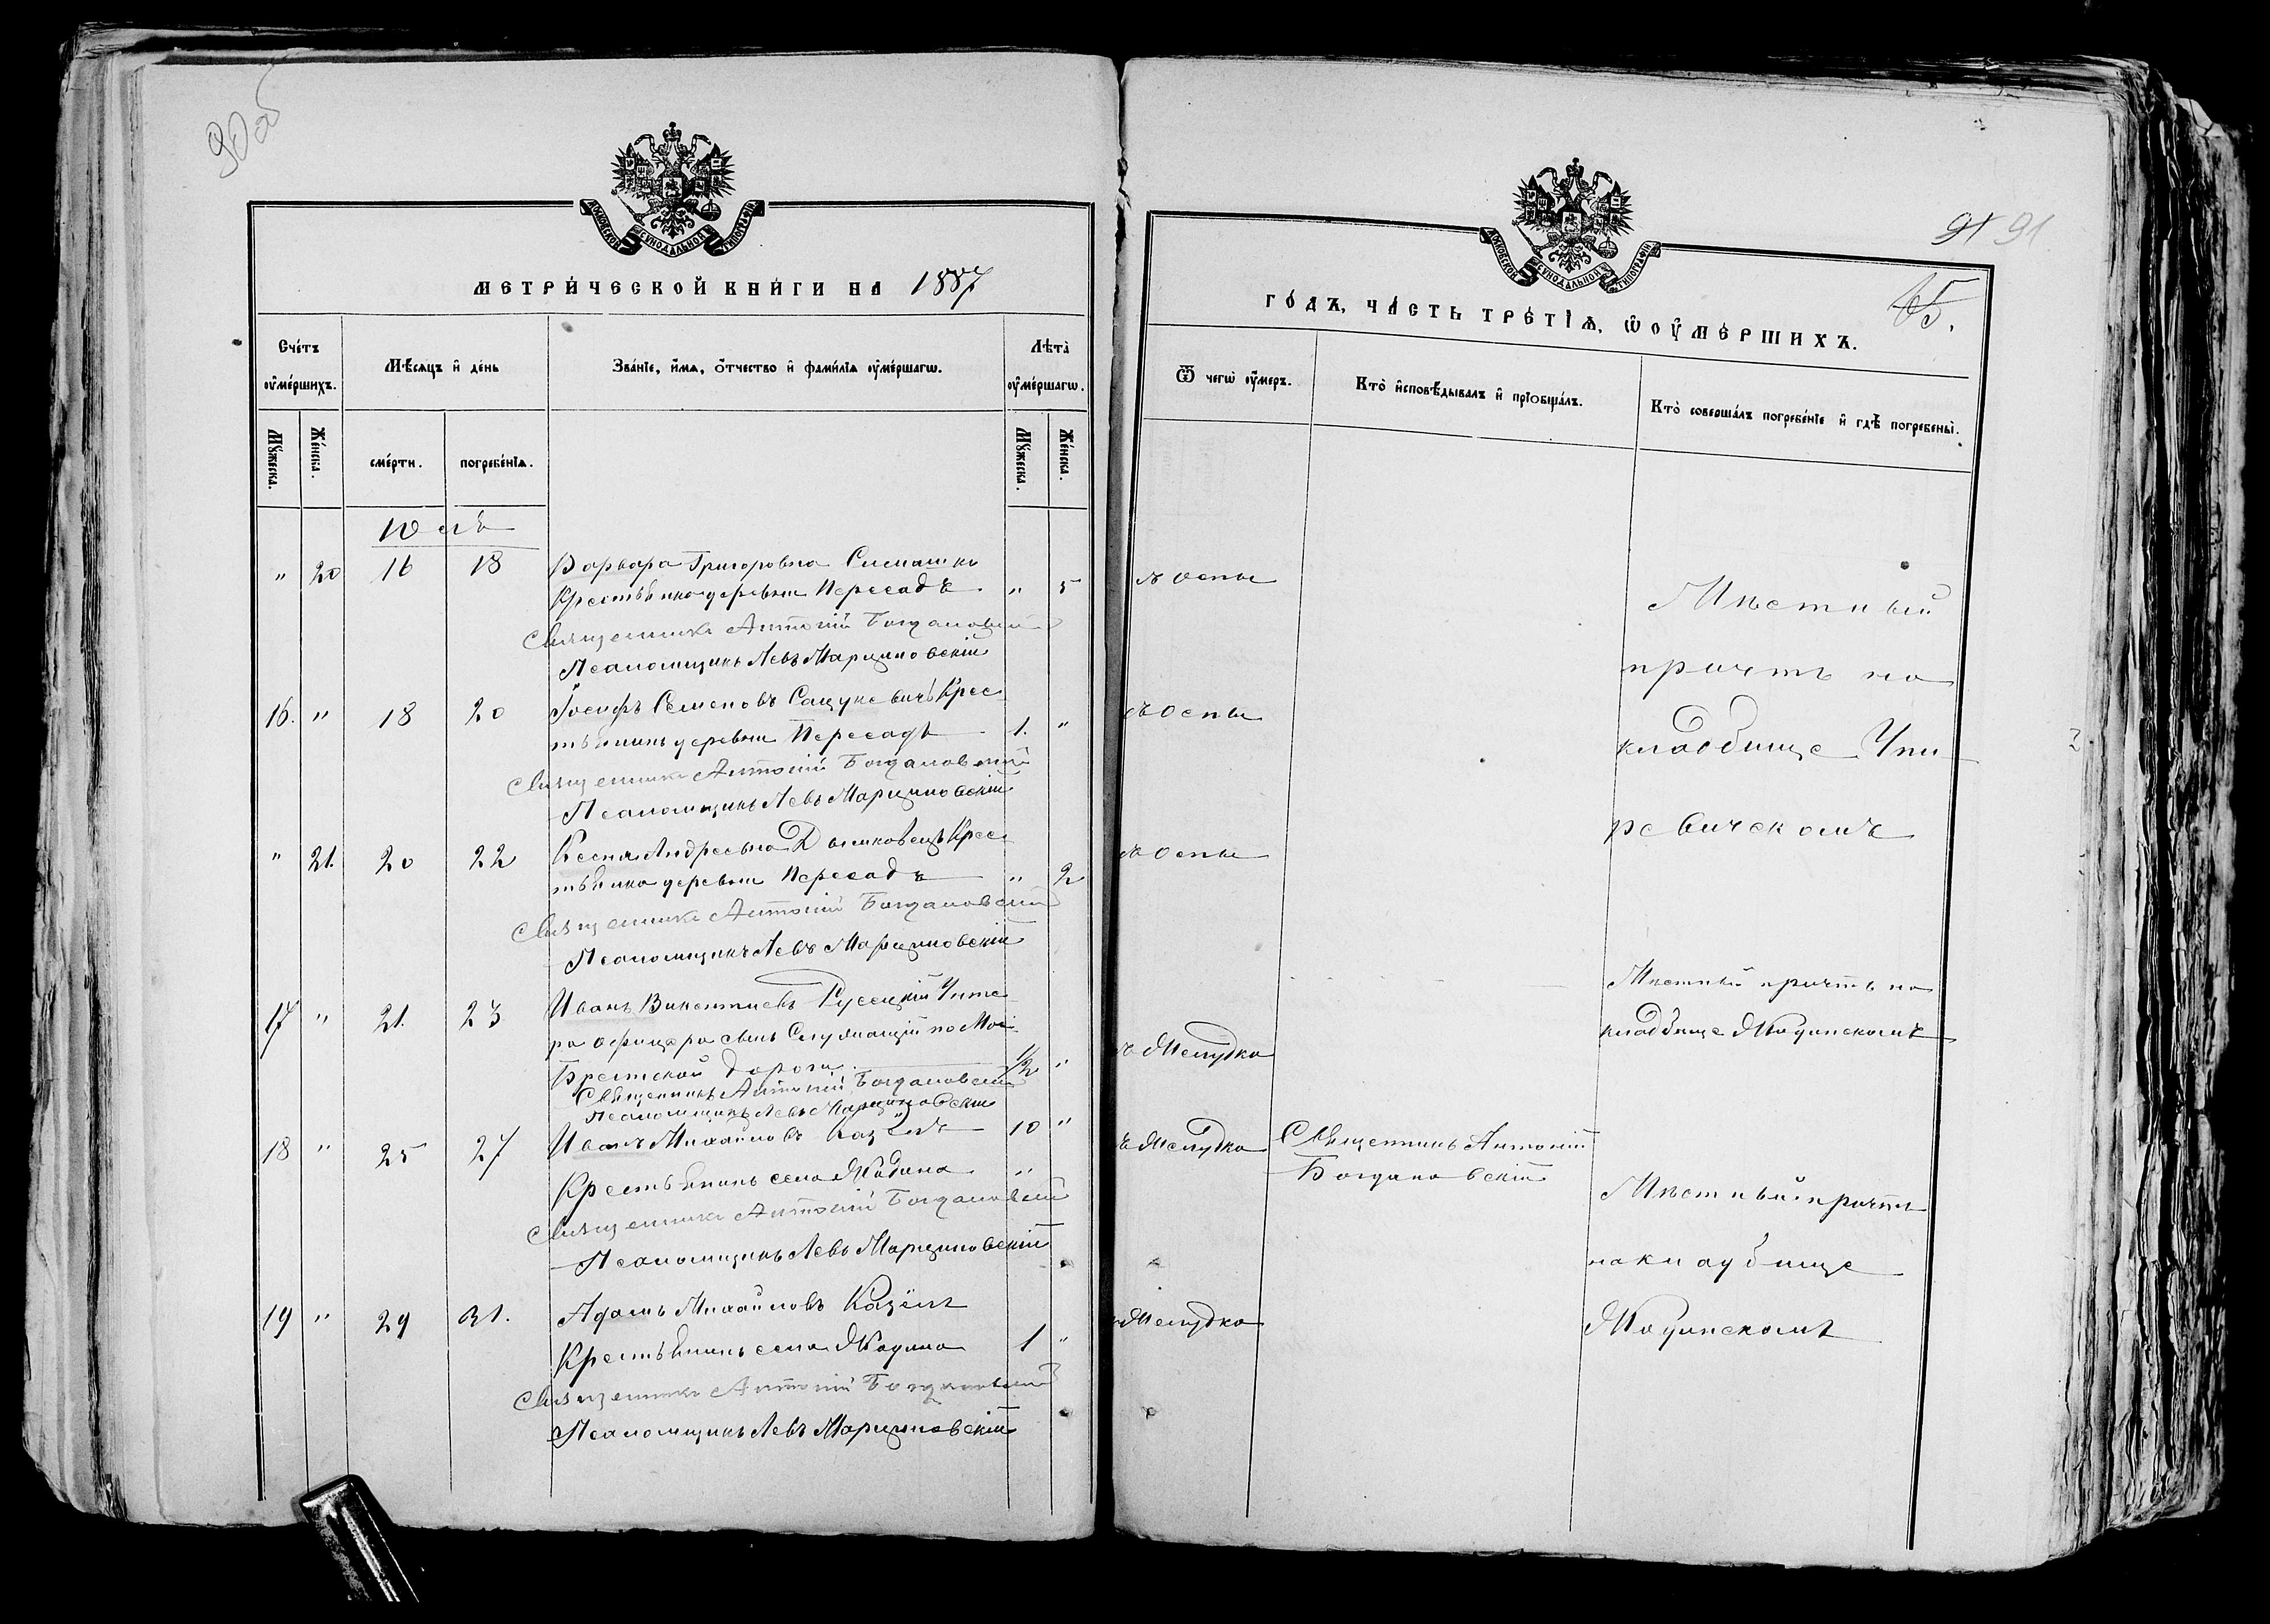 90 об
МОСКОВСКОЙ СѴНОДАЛЬНОЙ ТИПОГРАФІИ
МЕТРИ́ЧЕСКОЙ КНИ́ГИ НА 1887
Сче́тъ ᲂу҆ме́ршихъ.
Мѣ́сяцъ и҆ де́нь
Зва́нїе, и҆́мѧ, ѻ҆́тчество и҆ фами́лїѧ ᲂу҆ме́ршагѡ.
Лѣта̀ ᲂу҆ме́ршагѡ.
Мꙋ́жеска.
Же́нска.
сме́рти.
погребе́нїѧ.
Мꙋ́жеска.
Же́нска.
Юль
" 20 16 18 Варвара Григоровна Симашко
Крестьянка деревни Пересадъ " 5
Священникъ Антоній Богдановскій
Псаломщикъ Левъ Марциновскій
16. " 18 20 Іосифъ Семеновъ Сацукевичъ Крес
тьянинъ деревни Пересадъ 1. "
Священникъ Антоній Богдановскій
Псаломщикъ Левъ Марциновскій
" 21. 20 22 Ксенія Андреевна Дымковецъ Крес
тьянка деревни Пересадъ " 2
Священникъ Антоній Богдановскій
Псаломщикъ Левъ Марциновскій
17 " 21. 23 Иванъ Викентіевъ Русецкій Унте
ра Офицера сынъ Служащій по Мос.
Брестской дороги 1/2 "
Священникъ Антоній Богдановскій
Псаломщикъ Левъ Марциновскій
18 " 25 27 Иванъ Михайловъ Казёлъ 10 "
Крестьянинъ села Жодина "
Священникъ Антоній Богдановскій
Псаломщикъ Левъ Марциновскій
19 " 29 31. Адамъ Михайловъ Казёлъ
Крестьянинъ села Жодина 1 "
Священникъ Антоній Богдановскій
Псаломщикъ Левъ Марциновскій
91 91
МОСКОВСКОЙ СѴНОДАЛЬНОЙ ТИПОГРАФІИ
ГО́ДЪ, ЧА́СТЬ ТРЕ́ТЇѦ, Ѡ҆ ОУ҆МЕ́РШИХЪ.
Ѿ чегѡ̀ ᲂу҆́меръ.
Кто̀ и҆сповѣ́дывалъ и҆ прїобща́лъ.
Кто̀ соверша́лъ погребе́нїе и҆ гдѣ̀ погребены̀.
ъ оспы
Мѣстный
причтъ на
кладбище Упи
ревичскомъ
ъ оспы
ъ оспы
Мѣстный причтъ на
кладбище Жодинскомъ
ъ Желудка
ъ Желудка Священникъ Антоній
Богдановскій
Мѣстный причтъ
на кладбище
Жодинскомъ
Желудка